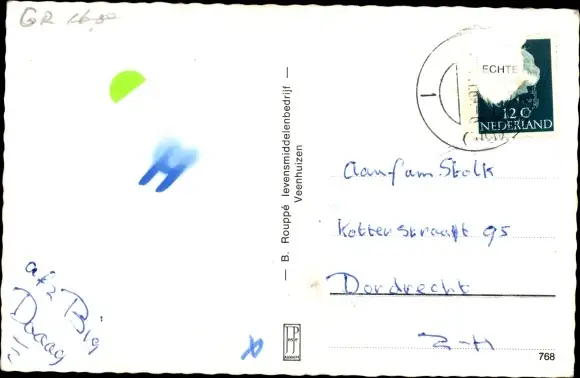 GR 16,50
ECHTE
12 C
NEDERLAND
B. Rouppé levensmiddelenbedrijf
Veenhuizen
Aan fam Stolk
Kotterstraat 95
Dordrecht
Z-H
afz Big
768